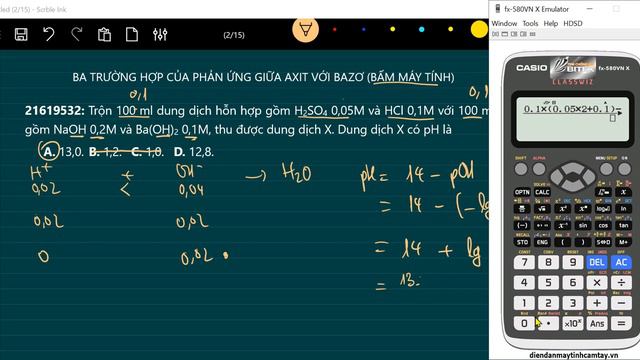 tled (2/15) - Scrble Ink
(2/15)
BA TRƯỜNG HỢP CỦA PHẢN ỨNG GIỮA AXIT VỚI BAZƠ (BẤM MÁY TÍNH)
0,1
0,1
21619532: Trộn 100 ml dung dịch hỗn hợp gồm H₂SO₄ 0,05M và HCl 0,1M với 100 m
gồm NaOH 0,2M và Ba(OH)₂ 0,1M, thu được dung dịch X. Dung dịch X có pH là
A. 13,0. B. 1,2. C. 1,0. D. 12,8.
H⁺ + OH⁻ → H₂O
0,02 < 0,04
0,02 0,02
0 0,02
pH = 14 - pOH
= 14 - (-lg
= 14 + lg
= 13
fx-580VN X Emulator
Window Tools Help HDSD
CASIO
fx-580VN X
BITEX
CLASSWIZ
0.1×(0.05×2+0.1)
SHIFT ALPHA MENU SETUP ON
OPTN CALC
STO ENG ( ) S⇔D M+
7 8 9 DEL AC
4 5 6 × ÷
1 2 3 + −
0 • ×10ˣ Ans =
diendanmaytinhcamtay.vn